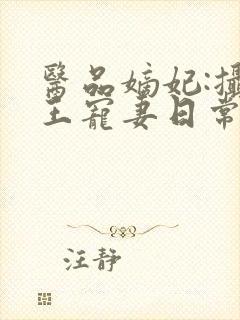 醫品嫡妃:攝
王寵妻日常
汪靜